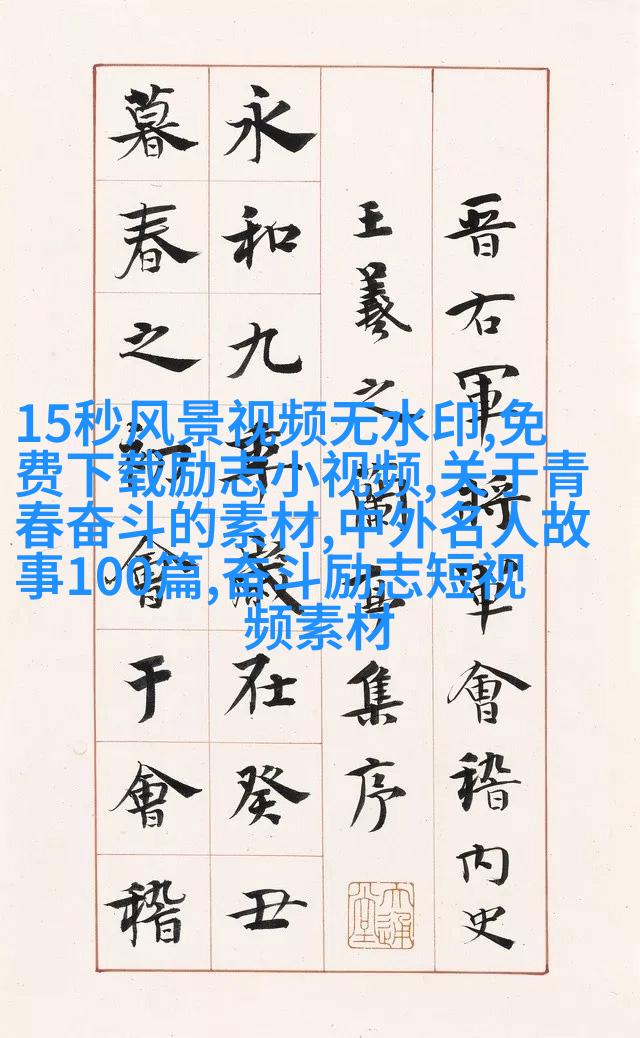 晋右軍將軍會稽内史
王羲之蘭亭集序
永和九年歲在癸丑
暮春之初會于會稽
15秒风景视频无水印,免
费下载励志小视频,关于青
春奋斗的素材,中外名人故
事100篇,奋斗励志短视
频素材